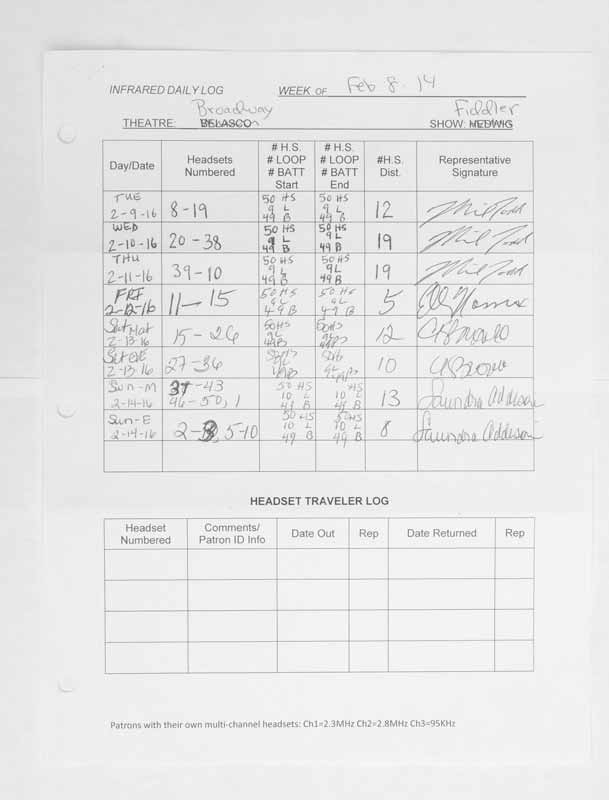 INFRARED DAILY LOG WEEK OF Feb 8-14
Broadway Fiddler
THEATRE: BELASCO SHOW: HEDWIG
Day/Date Headsets Numbered # H.S. # LOOP # BATT Start # H.S. # LOOP # BATT End #H.S. Dist. Representative Signature
TUE 2-9-16 8-19 50 HS 9 L 49 B 50 HS 9 L 49 B 12
WED 2-10-16 20-38 50 HS 9 L 49 B 50 HS 9L 49 B 19
THU 2-11-16 39-10 50 HS 9L 49 B 50 HS 9L 49 B 19
FRI 2-12-16 11-15 50 HS 9L 49 B 50 HS 9L 49 B 5
Sat Mat 2-13-16 15-26 50HS 9L 49B 50HS 9L 12
Sat EVE 2-13-16 27-36 9L 9L 10
Sun-M 2-14-16 37-43 46-50, 1 50 HS 10 L 49 B HS 10 L 49 B 13 Saundra Addison
Sun-E 2-14-16 2-3, 5-10 50 HS 10 L 49 B 50HS 10 L 49 B 8 Saundra Addison
HEADSET TRAVELER LOG
Headset Numbered Comments/ Patron ID Info Date Out Rep Date Returned Rep
Patrons with their own multi-channel headsets: Ch1=2.3MHz Ch2=2.8MHz Ch3=95KHz